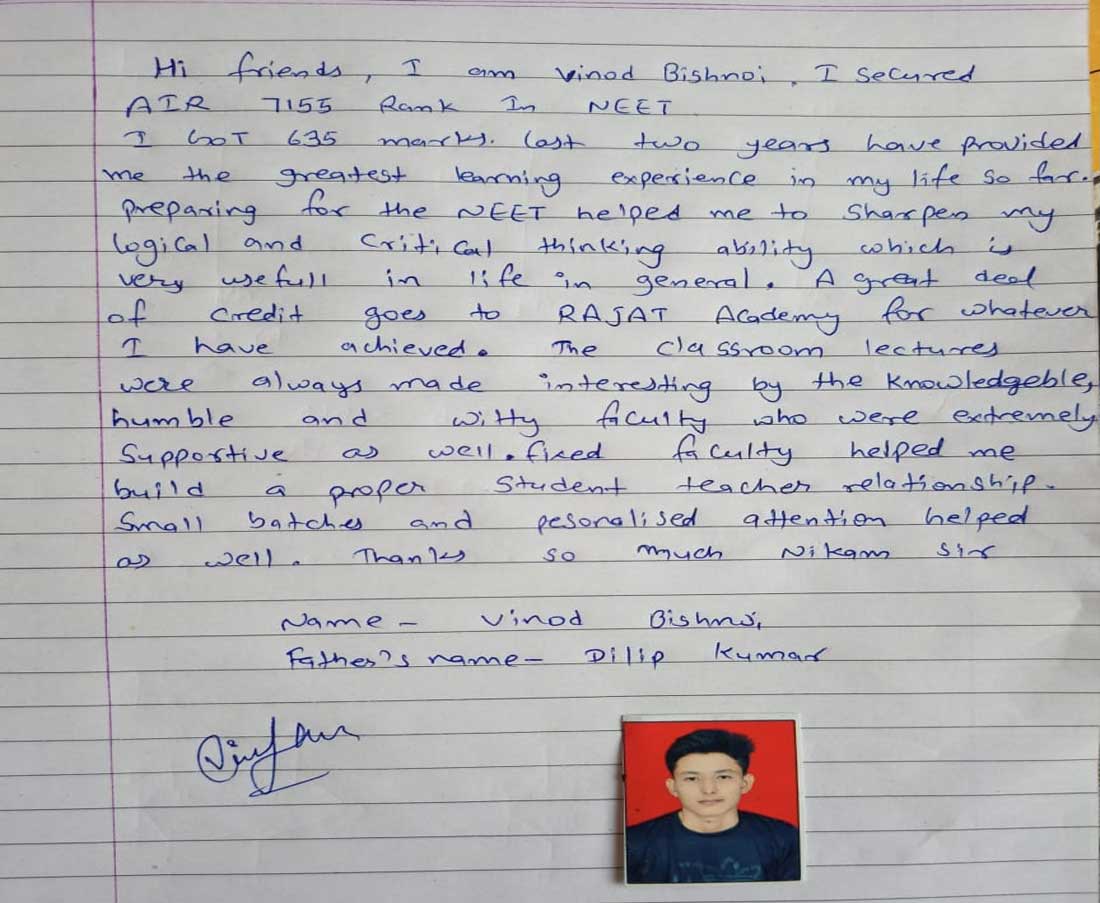 Hi friends, I am Vinod Bishnoi, I secured
AIR 7155 Rank In NEET
I GOT 635 marks. Last two years have provided
me the greatest learning experience in my life so far.
preparing for the NEET helped me to sharpen my
logical and critical thinking ability which is
very usefull in life in general. A great deal
of credit goes to RAJAT Academy for whatever
I have achieved. The classroom lectures
were always made interesting by the knowledgeble,
humble and witty faculty who were extremely
supportive as well. fixed faculty helped me
build a proper student teacher relationship.
Small batches and pesonalised attention helped
as well. Thanks so much Nikam sir
Name - Vinod Bishnoi
Father's name - Dilip Kumar